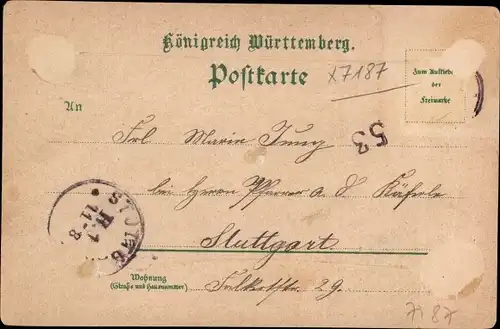 Königreich Württemberg.
Postkarte
X7187
Zum Aufkleben
der
Freimarke
An
Frl Marie Jung
53
bei Herrn Pfarrer a. D Käferle
Stuttgart.
Wohnung
(Straße und Hausnummer)
Falkertstr. 29.
7187